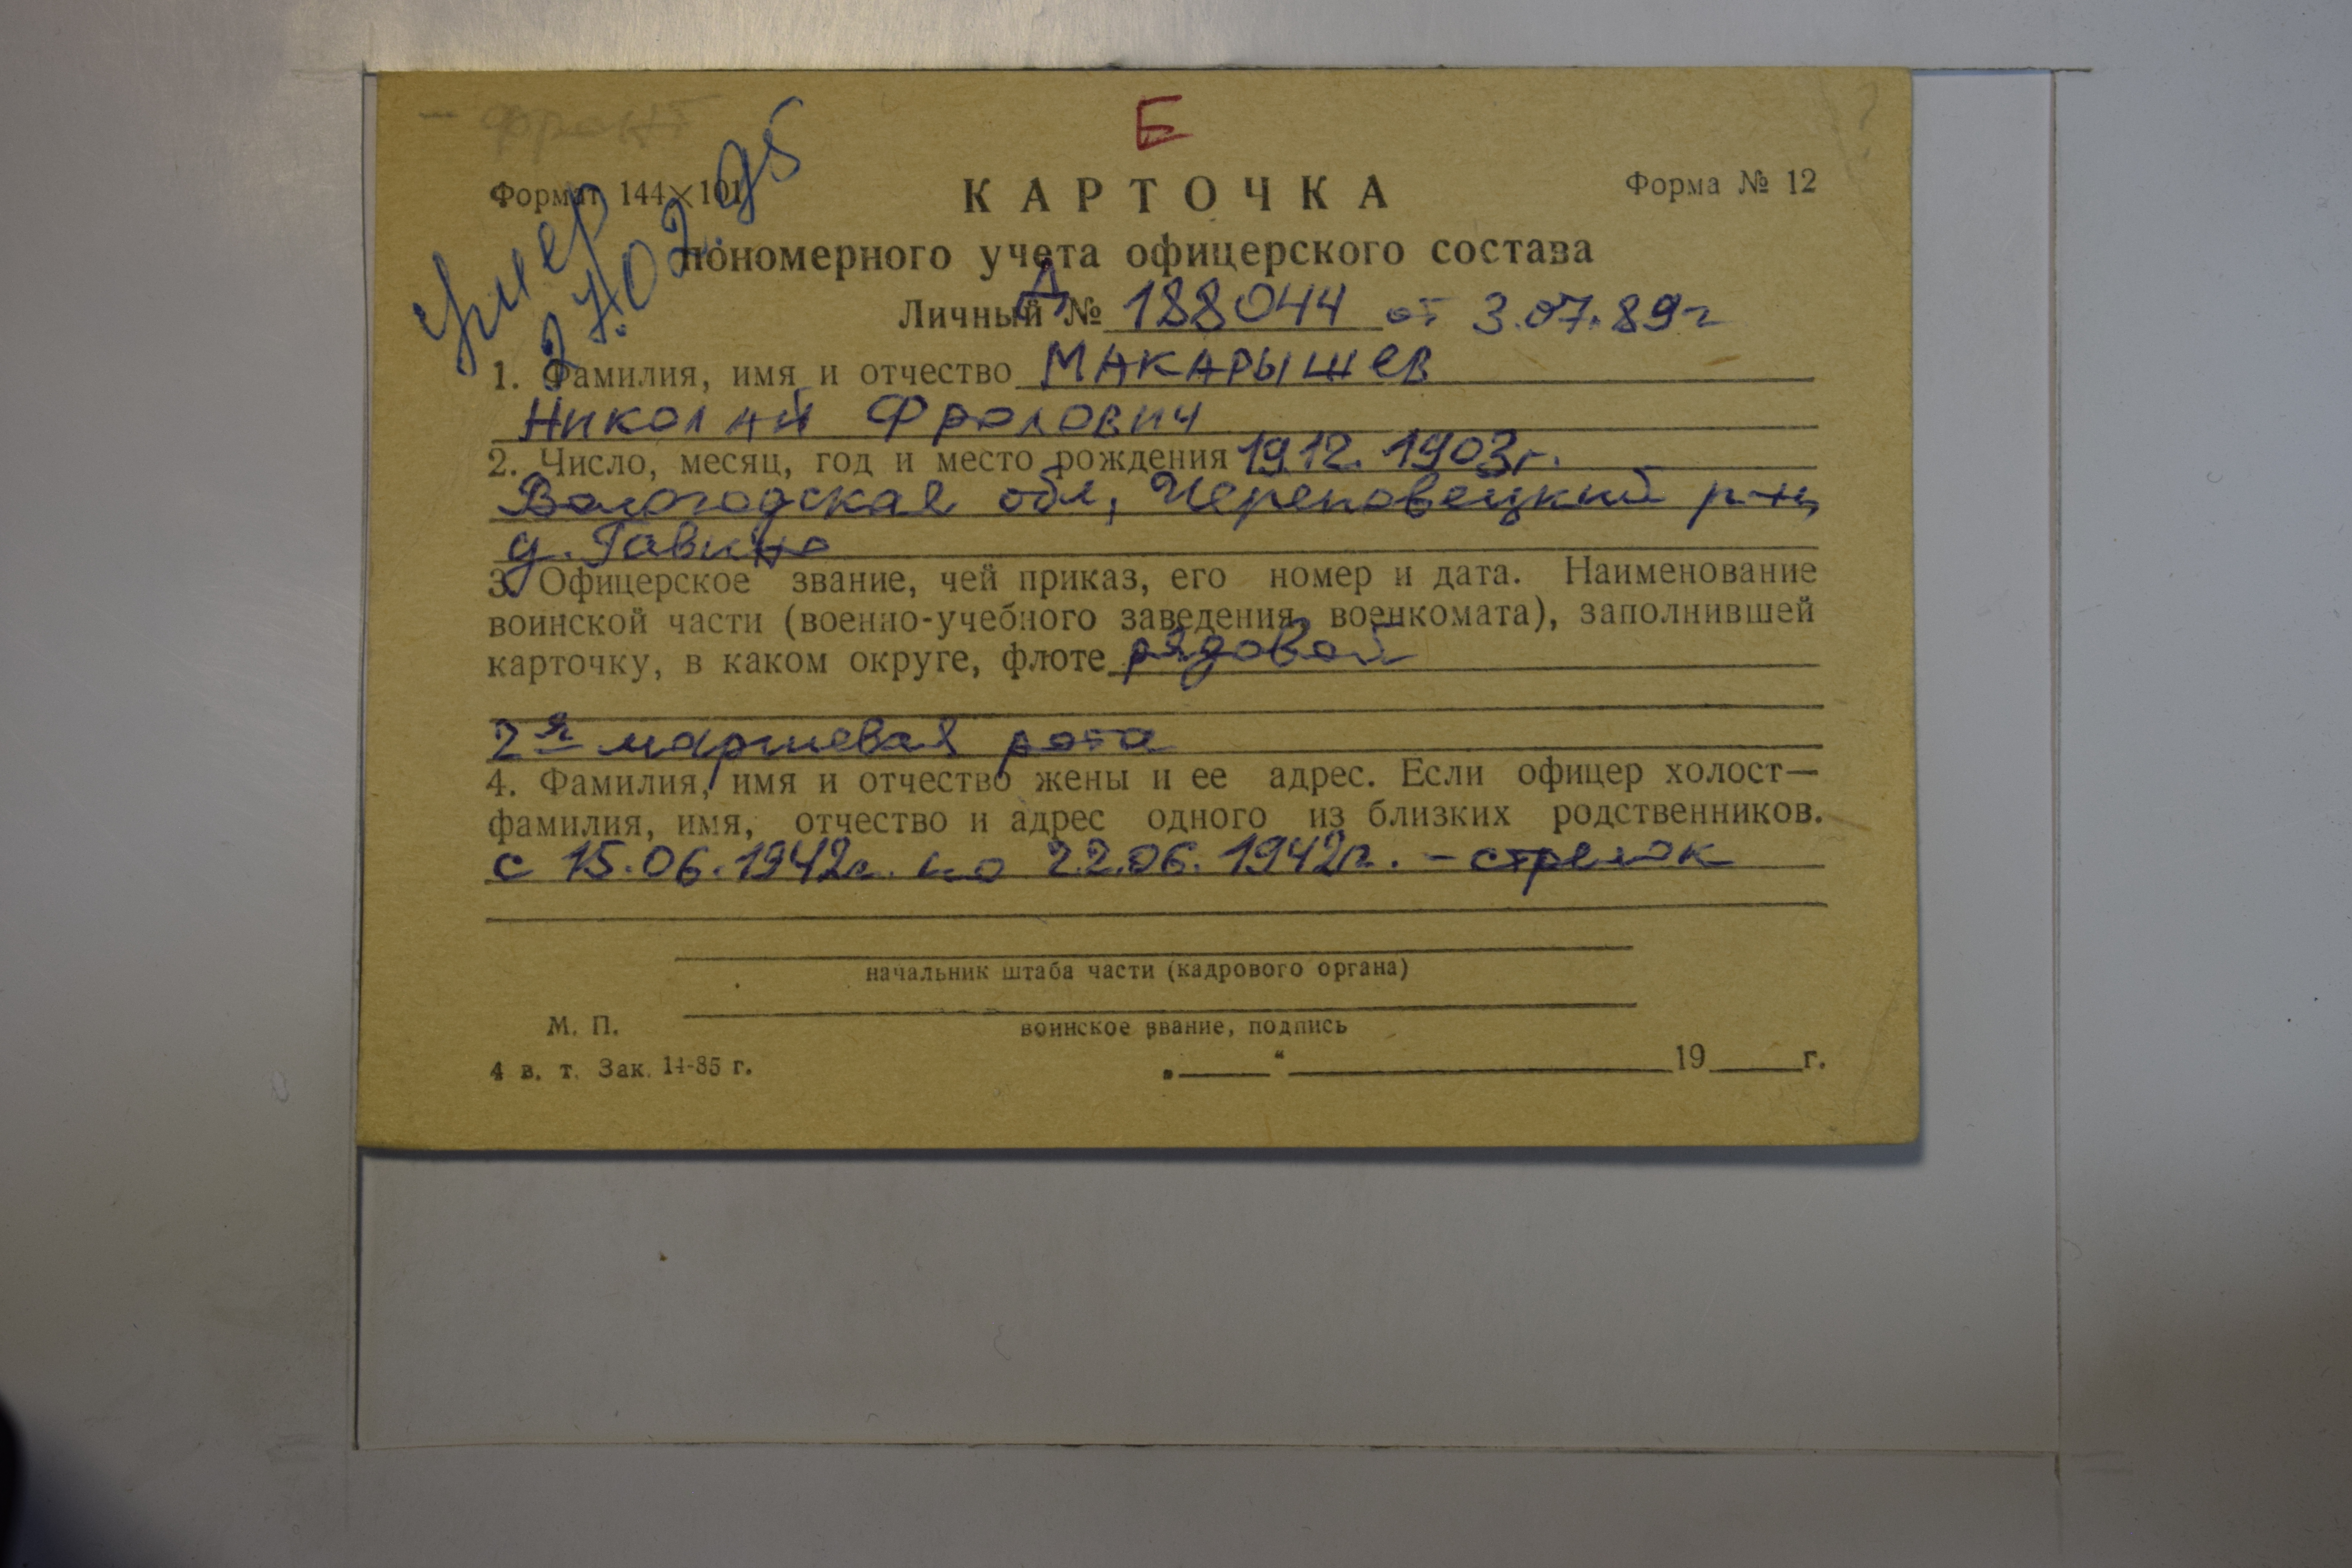 - фронт
Б
умер
27.02.95
Формат 144×101
КАРТОЧКА
Форма № 12
пономерного учета офицерского состава
Личный № Д 188044 от 3.07.89г
1. Фамилия, имя и отчество МАКАРЫШЕВ
Николай Фролович
2. Число, месяц, год и место рождения 19 12. 1903г.
Вологодская обл, Череповецкий р-н,
д. Гавино
3. Офицерское звание, чей приказ, его номер и дата. Наименование
воинской части (военно-учебного заведения, военкомата), заполнившей
карточку, в каком округе, флоте рядовой
2я маршевая рота
4. Фамилия, имя и отчество жены и ее адрес. Если офицер холост—
фамилия, имя, отчество и адрес одного из близких родственников.
с 15.06.1942г. по 22.06.1942г. - стрелок
начальник штаба части (кадрового органа)
М. П.
воинское звание, подпись
4 в. т. Зак. 14-85 г.
„____“ ____ 19____г.